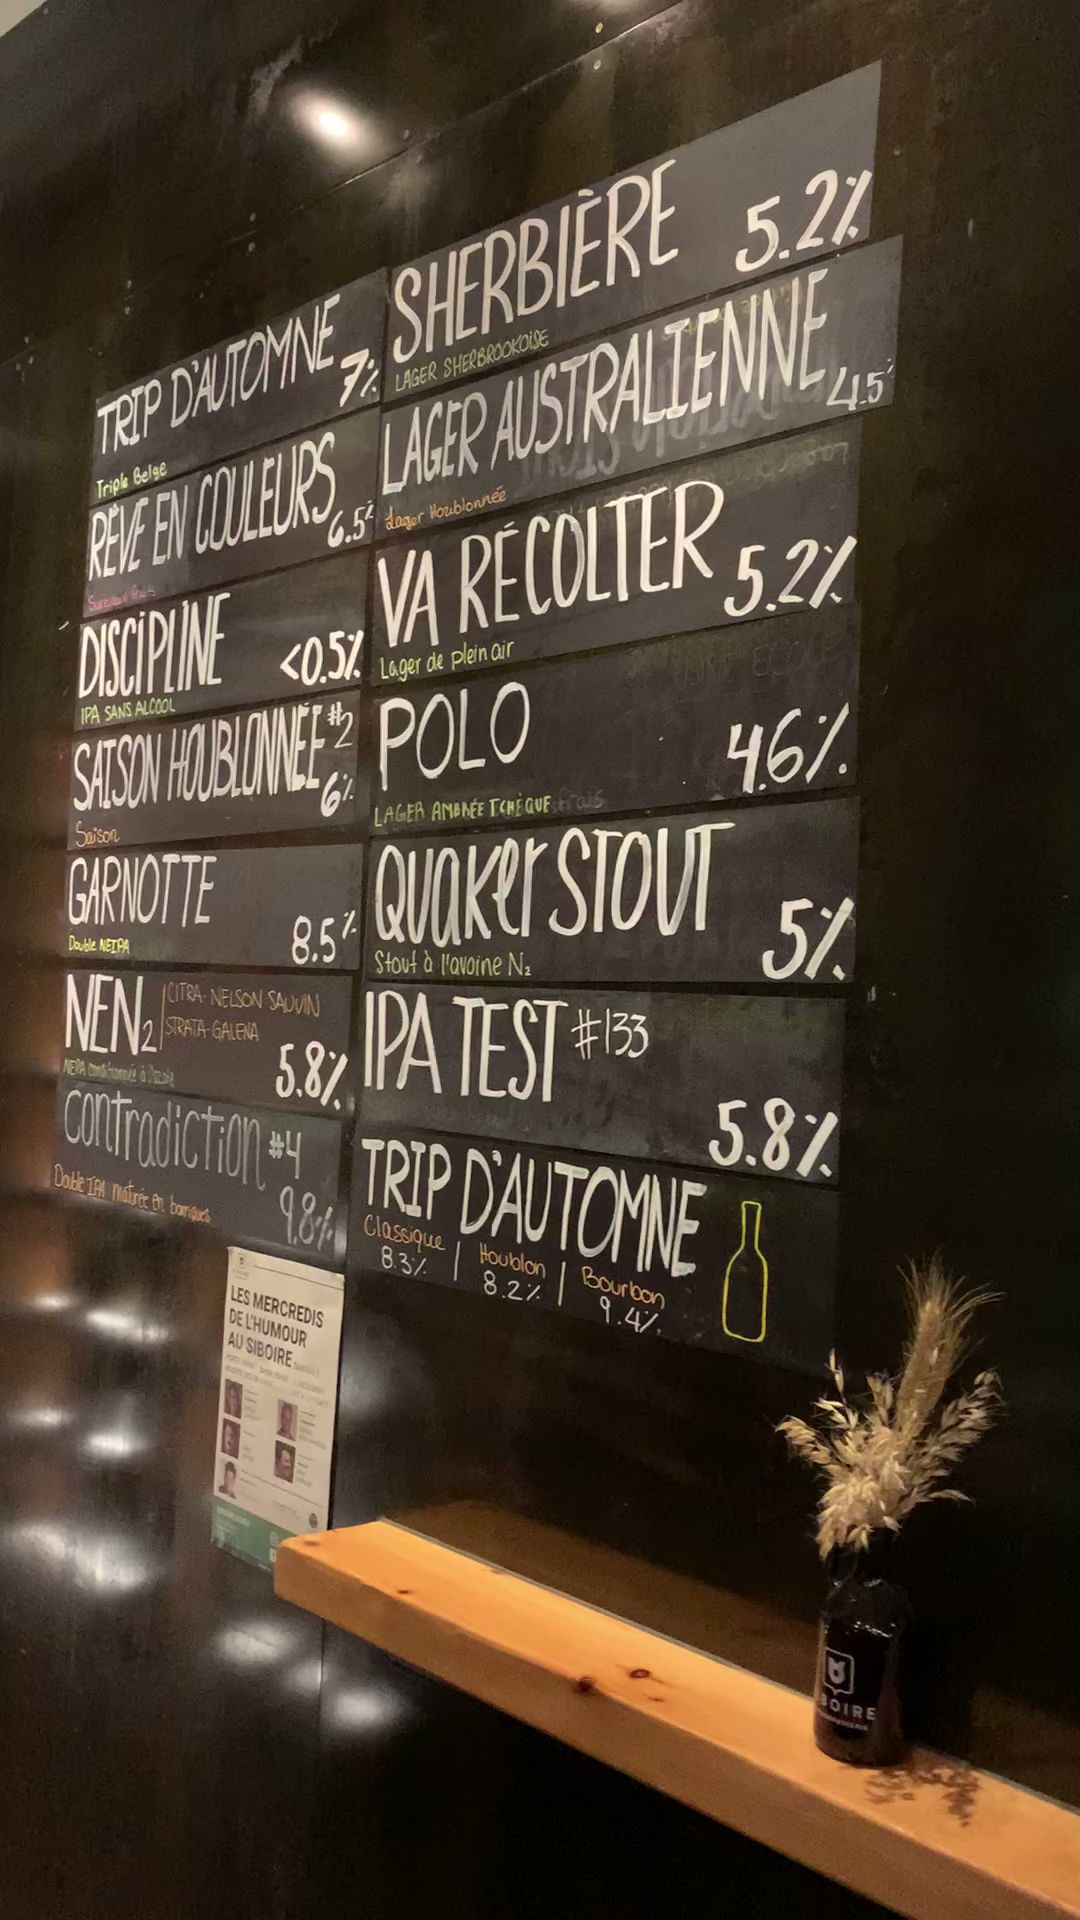 TRIP D'AUTOMNE
7%
Triple Belge
RÊVE EN COULEURS
6.5%
DISCIPLINE
<0.5%
IPA SANS ALCOOL
SAISON HOUBLONNÉE #2
6%
Saison
GARNOTTE
8.5%
Double NEIPA
NEN2
CITRA-NELSON SAUVIN
STRATA-GALENA
5.8%
NEIPA conditionnée à l'azote
Contradiction #4
9.8%
Double IPA maturée en barriques
SHERBIÈRE
5.2%
LAGER SHERBROOKOISE
LAGER AUSTRALIENNE
4.5
Lager Houblonnée
VA RÉCOLTER
5.2%
Lager de plein air
POLO
4.6%
LAGER AMBRÉE TCHÈQUE
QUAKER STOUT
5%
Stout à l'avoine N2
IPA TEST #133
5.8%
TRIP D'AUTOMNE
Classique | Houblon | Bourbon
8.3% 8.2% 9.4%
LES MERCREDIS
DE L'HUMOUR
AU SIBOIRE
BOIRE